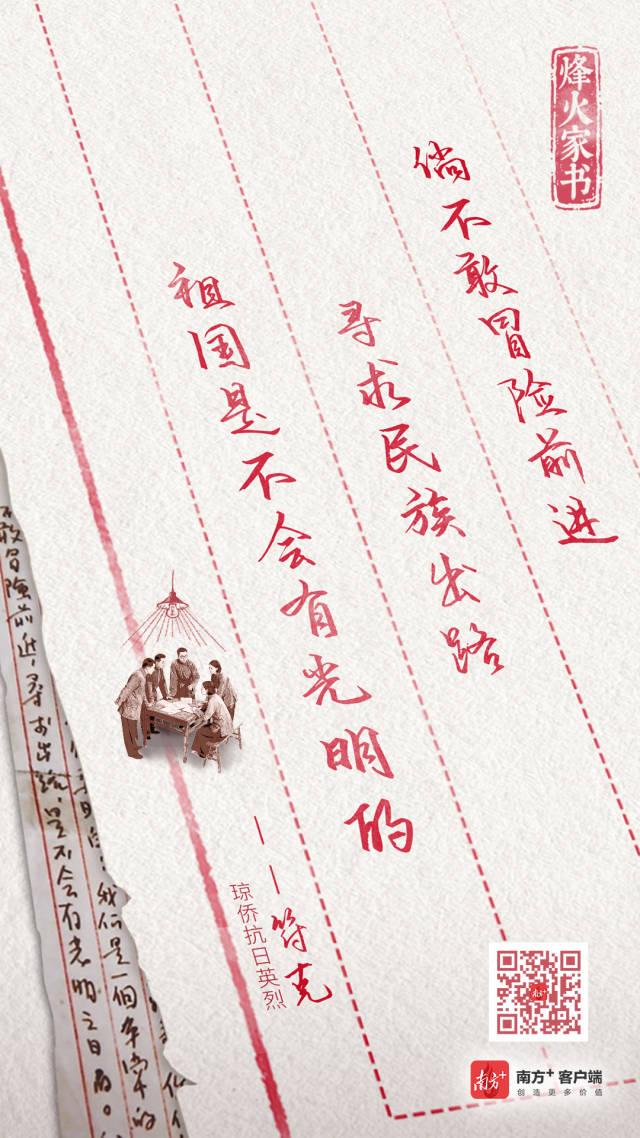 烽火家书
倘不敢冒险前进
寻求民族出路
祖国是不会有光明的
——符克
琼侨抗日英烈
不敢冒險前进，寻求出路，是不会有光明之日的。
我们是一個平常的
南方+
南方+ 客户端
创造更多价值